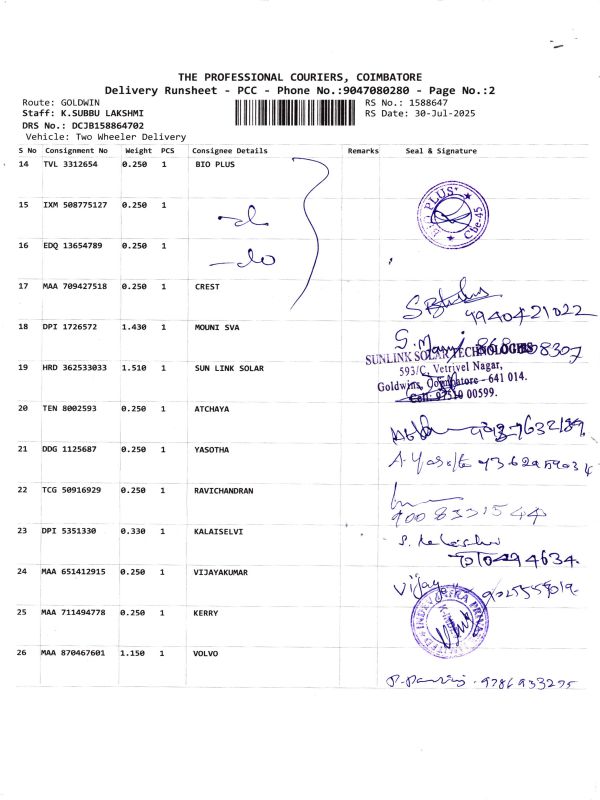 THE PROFESSIONAL COURIERS, COIMBATORE
Delivery Runsheet - PCC - Phone No.:9047080280 - Page No.:2
Route: GOLDWIN RS No.: 1588647
Staff: K.SUBBU LAKSHMI RS Date: 30-Jul-2025
DRS No.: DCJB158864702
Vehicle: Two Wheeler Delivery
S No Consignment No Weight PCS Consignee Details Remarks Seal & Signature
14 TVL 3312654 0.250 1 BIO PLUS
BIO PLUS Cbe-45
15 IXM 508775127 0.250 1
16 EDQ 13654789 0.250 1
17 MAA 709427518 0.250 1 CREST
9940421022
18 DPI 1726572 1.430 1 MOUNI SVA
19 HRD 362533033 1.510 1 SUN LINK SOLAR
SUNLINK SOLAR TECHNOLOGIES
593/C, Vetrivel Nagar,
Goldwins, Coimbatore - 641 014.
Cell: 97510 00599.
20 TEN 8002593 0.250 1 ATCHAYA
21 DDG 1125687 0.250 1 YASOTHA
22 TCG 50916929 0.250 1 RAVICHANDRAN
9008331544
23 DPI 5351330 0.330 1 KALAISELVI
24 MAA 651412915 0.250 1 VIJAYAKUMAR
25 MAA 711494778 0.250 1 KERRY
26 MAA 870467601 1.150 1 VOLVO
9786933275